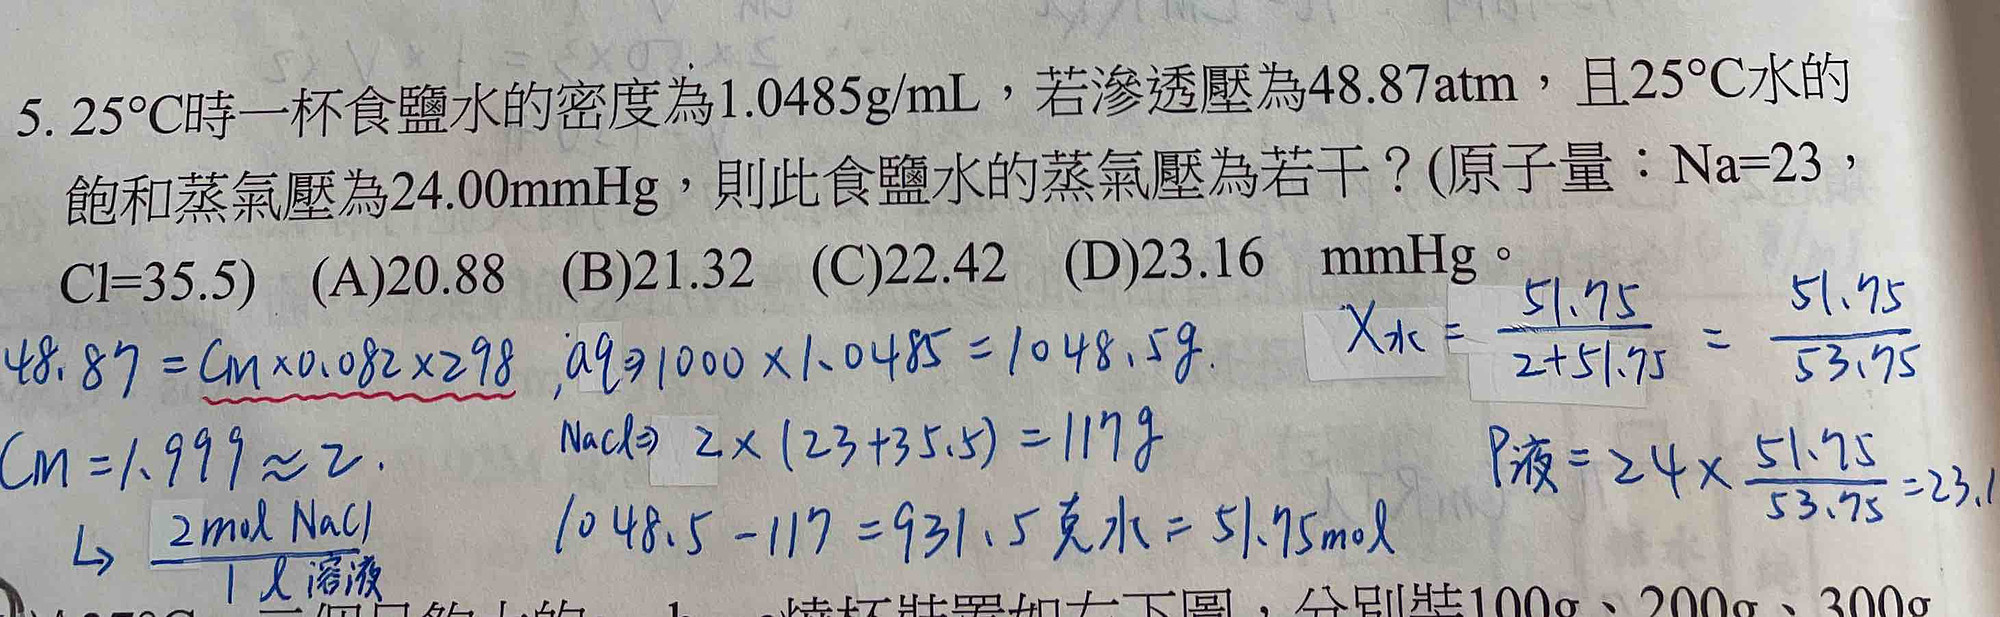 5. 25°C時一杯食鹽水的密度為1.0485g/mL，若滲透壓為48.87atm，且25°C水的
飽和蒸氣壓為24.00mmHg，則此食鹽水的蒸氣壓為若干？(原子量：Na=23，
Cl=35.5) (A)20.88 (B)21.32 (C)22.42 (D)23.16 mmHg。
48.87 = Cm×0.082×298
Cm = 1.999 ≈ 2.
↳ 2mol NaCl
1 l 溶液
, aq⇒1000×1.0485 = 1048.5g.
NaCl⇒ 2×(23+35.5) = 117g
1048.5 - 117 = 931.5克水 = 51.75mol
X水 = 51.75 / 2+51.75 = 51.75 / 53.75
P液 = 24 × 51.75 / 53.75 = 23.1
燒杯裝置如右下圖，分別裝100g、200g、300g